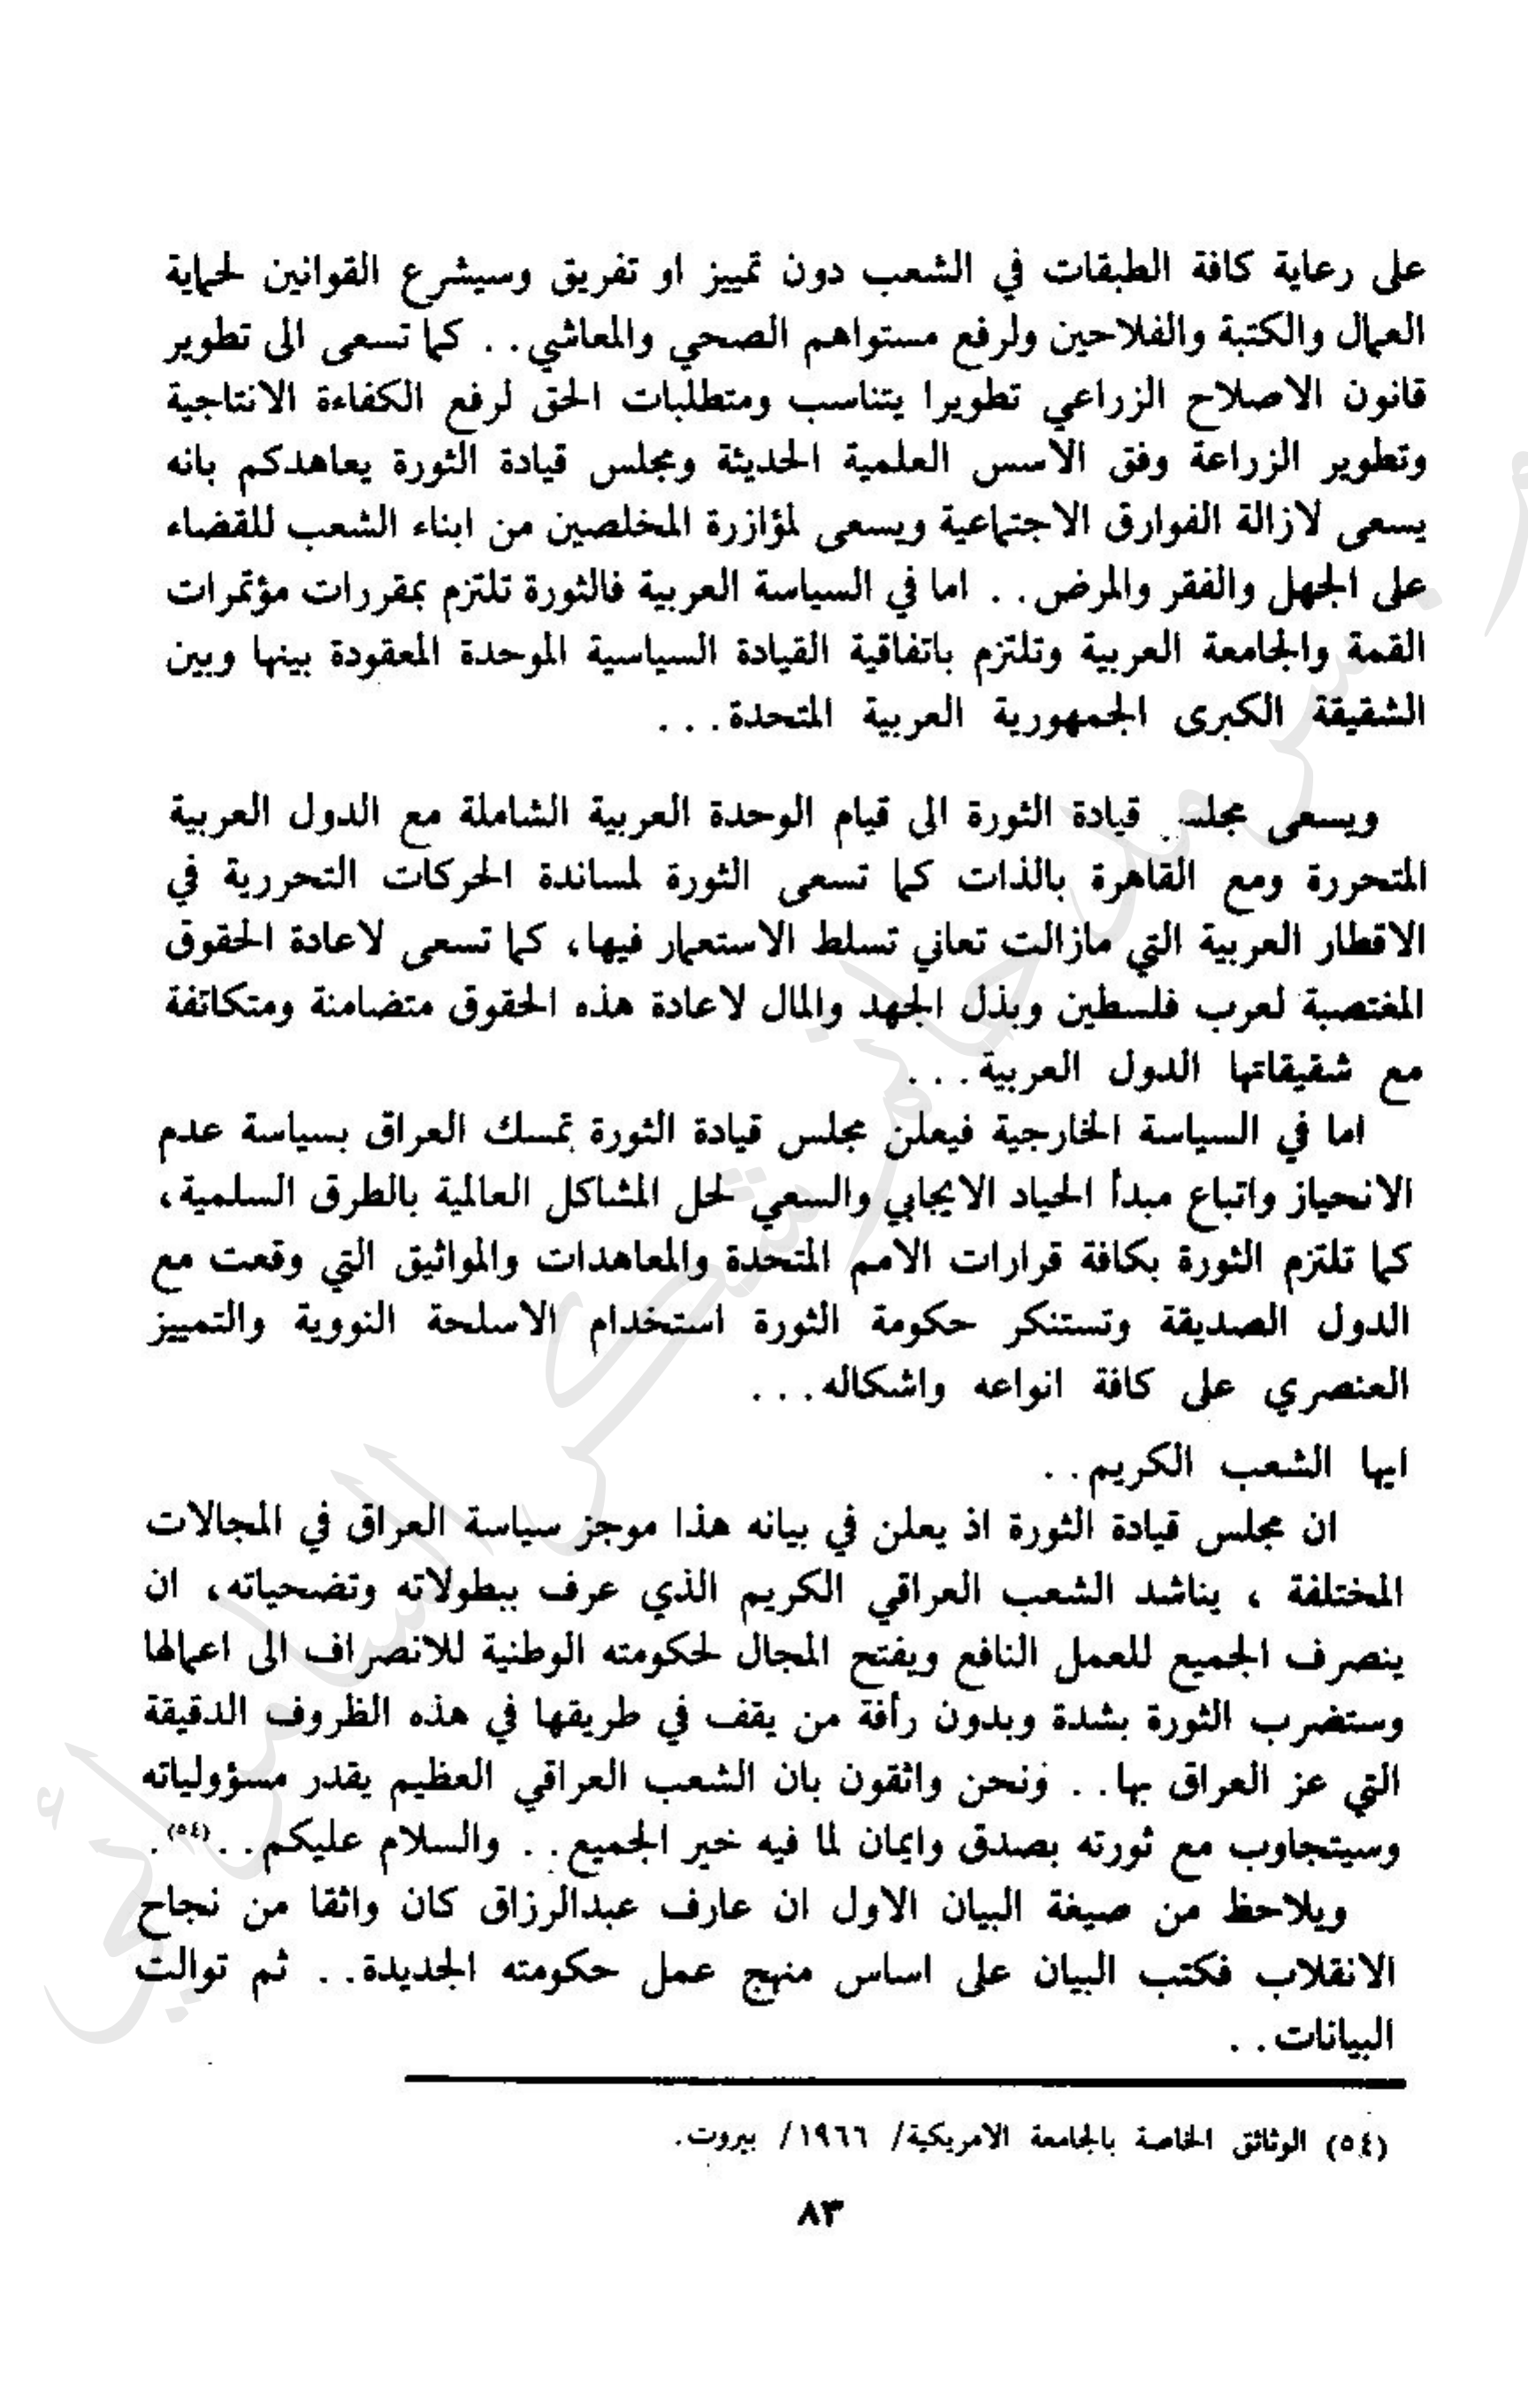 على رعاية كافة الطبقات في الشعب دون تمييز او تفريق وسيشرع القوانين لحماية
العمال والكتبة والفلاحين ولرفع مستواهم الصحي والمعاشي.. كما تسعى الى تطوير
قانون الاصلاح الزراعي تطويرا يتناسب ومتطلبات الحق لرفع الكفاءة الانتاجية
وتطوير الزراعة وفق الاسس العلمية الحديثة ومجلس قيادة الثورة يعاهدكم بانه
يسعى لازالة الفوارق الاجتماعية ويسعى لمؤازرة المخلصين من ابناء الشعب للقضاء
على الجهل والفقر والمرض.. اما في السياسة العربية فالثورة تلتزم بمقررات مؤتمرات
القمة والجامعة العربية وتلتزم باتفاقية القيادة السياسية الموحدة المعقودة بينها وبين
الشقيقة الكبرى الجمهورية العربية المتحدة...
ويسعى مجلس قيادة الثورة الى قيام الوحدة العربية الشاملة مع الدول العربية
المتحررة ومع القاهرة بالذات كما تسعى الثورة لمساندة الحركات التحررية في
الاقطار العربية التي مازالت تعاني تسلط الاستعمار فيها، كما تسعى لاعادة الحقوق
المغتصبة لعرب فلسطين وبذل الجهد والمال لاعادة هذه الحقوق متضامنة ومتكاتفة
مع شقيقاتها الدول العربية...
اما في السياسة الخارجية فيعلن مجلس قيادة الثورة تمسك العراق بسياسة عدم
الانحياز واتباع مبدأ الحياد الايجابي والسعي لحل المشاكل العالمية بالطرق السلمية،
كما تلتزم الثورة بكافة قرارات الامم المتحدة والمعاهدات والمواثيق التي وقعت مع
الدول الصديقة وتستنكر حكومة الثورة استخدام الاسلحة النووية والتمييز
العنصري على كافة انواعه واشكاله...
ايها الشعب الكريم..
ان مجلس قيادة الثورة اذ يعلن في بيانه هذا موجز سياسة العراق في المجالات
المختلفة ، يناشد الشعب العراقي الكريم الذي عرف ببطولاته وتضحياته، ان
ينصرف الجميع للعمل النافع ويفتح المجال لحكومته الوطنية للانصراف الى اعمالها
وستضرب الثورة بشدة وبدون رأفة من يقف في طريقها في هذه الظروف الدقيقة
التي عز العراق بها.. ونحن واثقون بان الشعب العراقي العظيم يقدر مسؤولياته
وسيتجاوب مع ثورته بصدق وايمان لما فيه خير الجميع.. والسلام عليكم..(٥٤).
ويلاحظ من صيغة البيان الاول ان عارف عبدالرزاق كان واثقا من نجاح
الانقلاب فكتب البيان على اساس منهج عمل حكومته الجديدة.. ثم توالت
البيانات..
(٥٤) الوثائق الخاصة بالجامعة الامريكية/ ١٩٦٦/ بيروت.
٨٣